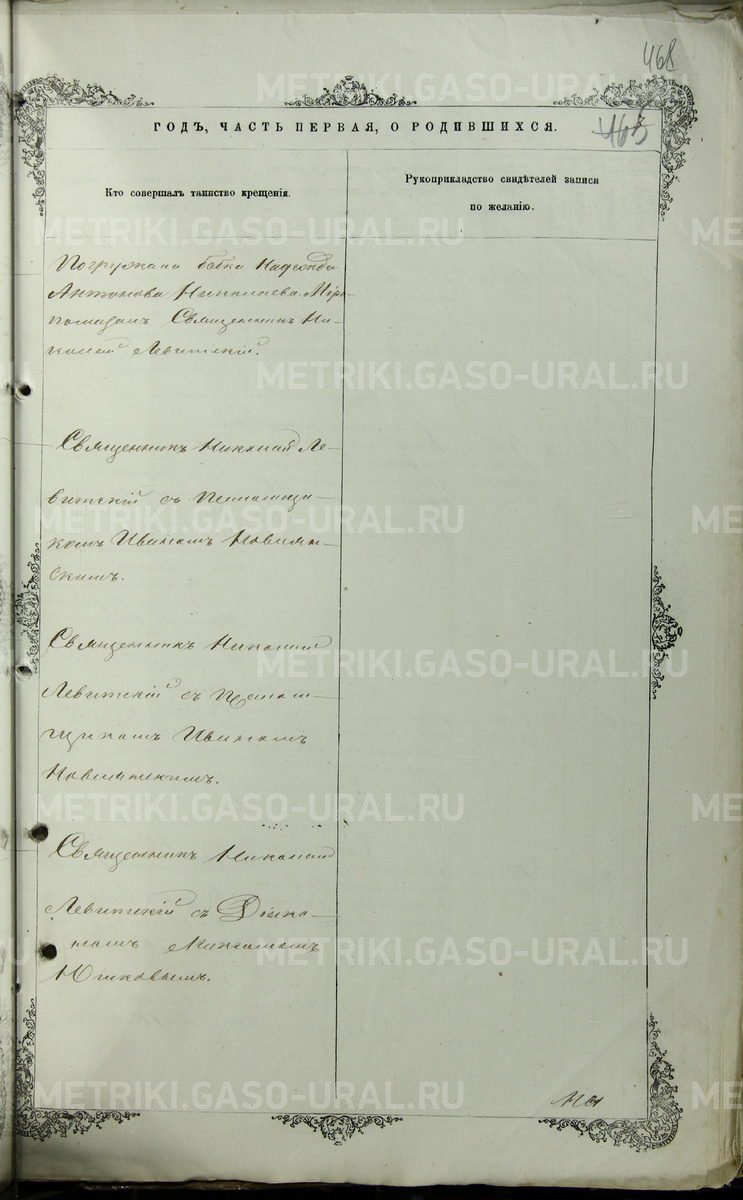 468
465
ГОДЪ, ЧАСТЬ ПЕРВАЯ, О РОДИВШИХСЯ.
Кто совершалъ таинство крещенія.
Рукоприкладство свидѣтелей записи
по желанію.
Погружала бабка Надежда
Антонова Николаева. Мѵро-
помазалъ Священникъ Ни-
колай Левитскій.
Священникъ Николай Ле-
витскій съ Псаломщи-
комъ Иваномъ Новинс-
скимъ.
Священникъ Николай
Левитскій съ Псалом-
щикомъ Иваномъ
Священникъ Николай
Левитскій съ Діако-
номъ
Юшковымъ.
METRIKI.GASO-URAL.RU